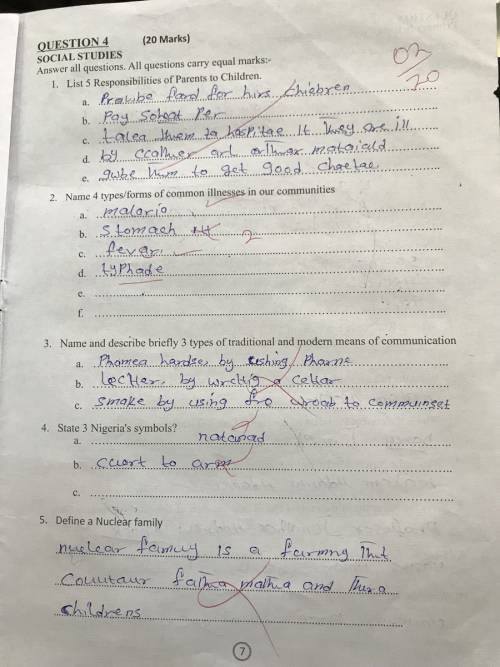 QUESTION 4 (20 Marks)
SOCIAL STUDIES
Answer all questions. All questions carry equal marks:-
02/20
1. List 5 Responsibilities of Parents to Children.
a. for hirs Chiebren
b. Pay School Per
c. talea them to hospitae It They are ill
d. by ccother art other mataiald
e. gwbe him to get good
2. Name 4 types/forms of common illnesses in our communities
a. malario
b. Stomach
c. fevar
2
d. typhade
e.
f.
3. Name and describe briefly 3 types of traditional and modern means of communication
a. Phomea hardse, by ushing Pharne
b. lectter, by wrcttig a Cettar
c. smoke by using fro wroab to commuinset
4. State 3 Nigeria's symbols?
a. natanad
b. cuort to arm
c.
5. Define a Nuclear family
nuclear famuy is a farming that
Conutaur father mathia and ther a
childrens
7